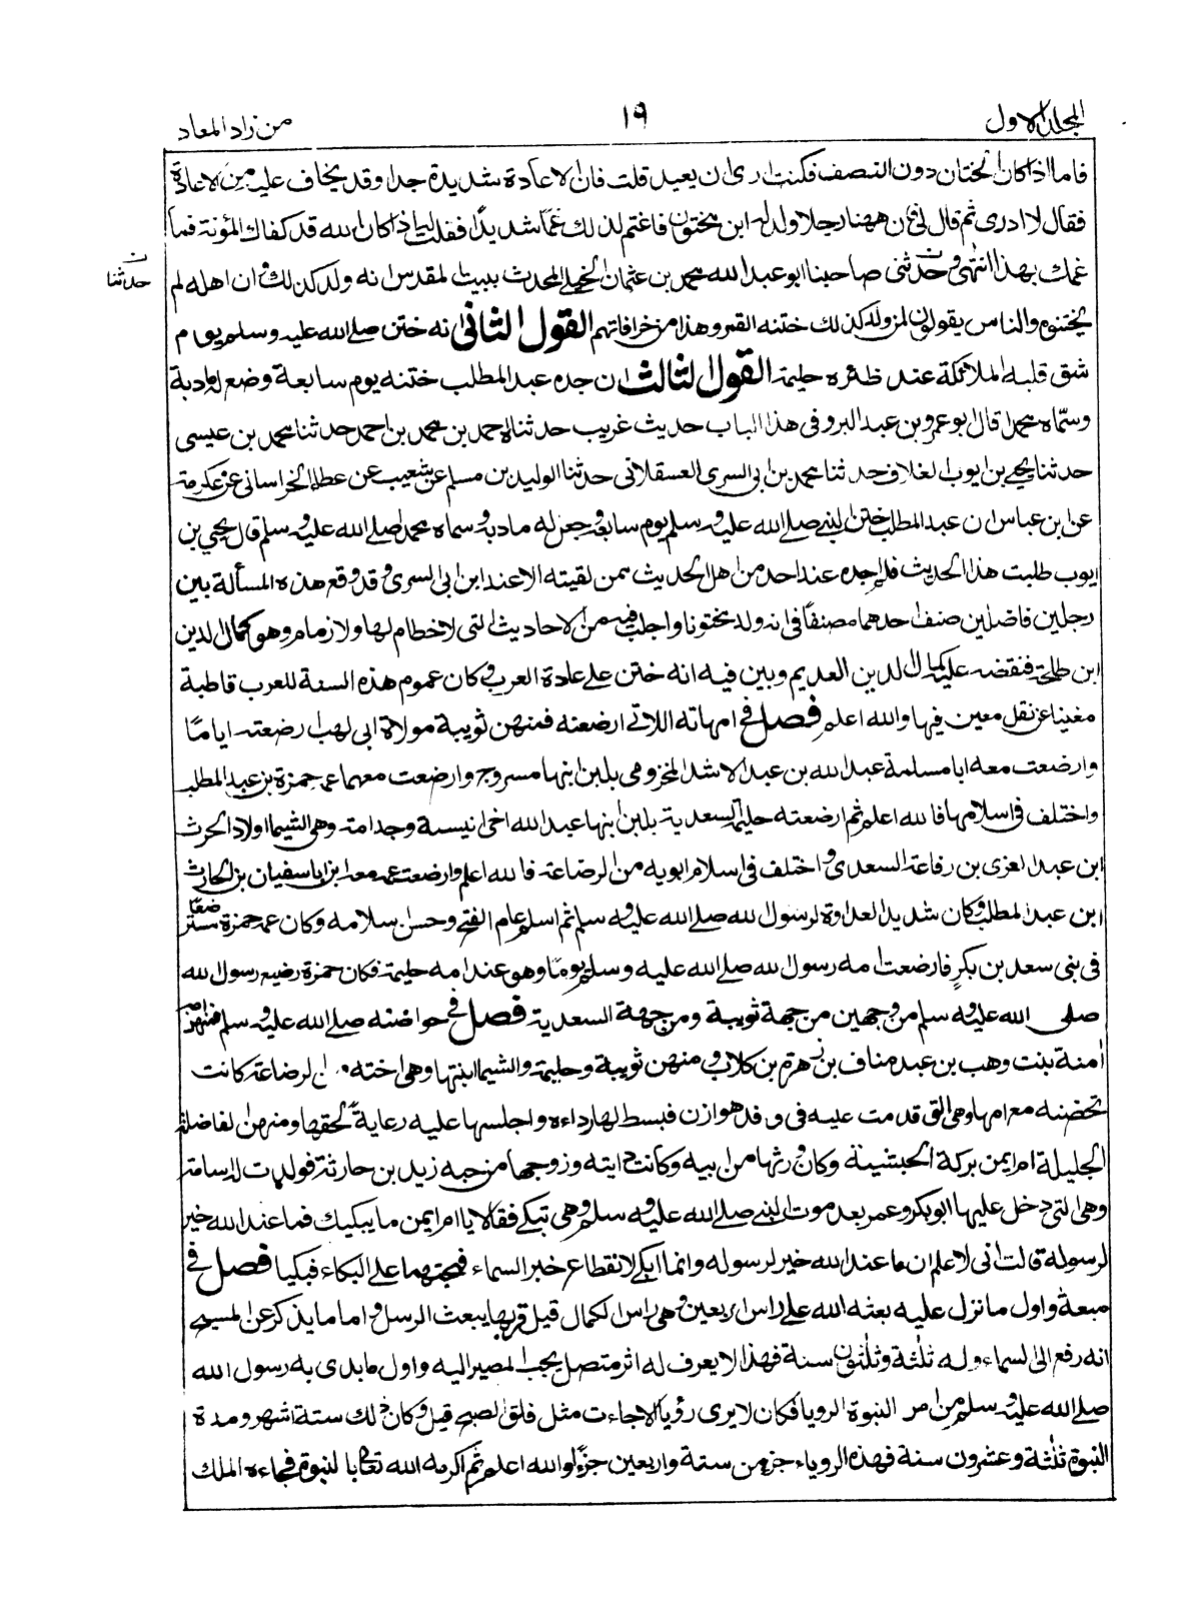 المجلد الاول
١٩
من زاد المعاد
فاما اذا كان الختان دون النصف فكنت ارى ان يعيد قلت فان الاعادة شديدة جدا وقد يخاف عليه من الاعادة
فقال لا ادرى ثم قال لى فان ههنا رجلا ولد له ابن مختون فاغتم لذلك غما شديدًا فقلت له اذا كان الله قد كفاك المؤنة فما
غمك بهذا انتهى وحدثنى صاحبنا ابو عبد الله محمد بن عثمان الخليلى المحدث ببيت المقدس انه ولد كذلك وان اهله لم
ن
حدثنا
يختنوه والناس يقولون لمن ولد كذلك ختنه القمر وهذا من خرافاتهم القول الثانى انه ختن صلى الله عليه وسلم يوم
شق قلبه الملائكة عند ظئره حليمة القول الثالث ان جده عبد المطلب ختنه يوم سابعة وضع له مادبة
وسمّاه محمدا قال ابو عمرو بن عبد البر وفى هذا الباب حديث غريب حدثناه احمد بن محمد بن احمد حدثنا محمد بن عيسى
حدثنا يحيى بن ايوب العلاف حدثنا محمد بن ابى السرى العسقلانى حدثنا الوليد بن مسلم عن شعيب عن عطاء الخراسانى عن عكرمة
عن ابن عباس ان عبد المطلب ختن النبى صلى الله عليه وسلم يوم سابعه وجعل له مادبة وسماه محمد صلى الله عليه وسلم قال يحيى بن
ايوب طلبت هذا الحديث فلم اجده عند احد من اهل الحديث ممن لقيته الا عند ابن ابى السرى وقد وقع هذه المسألة بين
رجلين فاضلين صنف احدهما مصنفًا فى انه ولد مختونا واجلب فيه من الاحاديث التى لا خطام لها ولا زمام وهو كمال الدين
ابن طلحة فنقضه عليه كمال الدين بن العديم وبين فيه انه ختن على عادة العرب وكان عموم هذه السنة للعرب قاطبة
مغنيا عن نقل معين فيها والله اعلم فصل فى امهاته اللاتى ارضعنه فمنهن ثويبة مولاة ابى لهب ارضعته ايامًا
وارضعت معه ابا سلمة عبد الله بن عبد الاشد المخزومى بلبن ابنها مسروح وارضعت معهما عمه حمزة بن عبد المطلب
واختلف فى اسلامها فالله اعلم ثم ارضعته حليمة السعدية بلبن ابنها عبد الله اخى انيسة وجدامة وهى الشيما اولاد الحرث
ابن عبد العزى بن رفاعة السعدى واختلف فى اسلام ابويه من الرضاعة فالله اعلم وارضعت معه ابن عمه ابا سفيان بن الحارث
ابن عبد المطلب وكان شديد العداوة لرسول الله صلى الله عليه وسلم ثم اسلم عام الفتح وحسن اسلامه وكان عمه حمزة مسترضعًا
فى بنى سعد بن بكرٍ فارضعت امه رسول الله صلى الله عليه وسلم يومًا وهو عند امه حليمة فكان حمزة رضيع رسول الله
صلى الله عليه وسلم من وجهين من جهة ثويبة ومن جهة السعدية فصل فى حواضنه صلى الله عليه وسلم فمنهن امه
اٰمنة بنت وهب بن عبد مناف بن زهرة بن كلاب ومنهن ثويبة وحليمة والشيما ابنتها وهى اخته من الرضاعة كانت
تحضنه مع امها وهى التى قدمت عليه فى وفد هوازن فبسط لها رداءه واجلسها عليه رعايةً لحقها ومنهن الفاضلة
الجليلة ام ايمن بركة الحبشية وكان ورثها من ابيه وكانت دايته وزوجها من حبه زيد بن حارثة فولدت له اسامة
وهى التى دخل عليها ابو بكر وعمر بعد موت النبى صلى الله عليه وسلم وهى تبكى فقالا يا ام ايمن ما يبكيك فما عند الله خير
لرسوله قالت انى لا علم ان ما عند الله خير لرسوله وانما ابكى لانقطاع خبر السماء فهيجتهما على البكاء فبكيا فصل فى
مبعثه واول ما نزل عليه بعثه الله على راس اربعين وهى راس الكمال قيل وبها يبعث الرسل واما ما يذكر عن المسيح
انه رفع الى السماء وله ثلٰثة وثلٰثون سنة فهذا لا يعرف له اثر متصل يجب المصير اليه واول ما بدى به رسول الله
صلى الله عليه وسلم من امر النبوة الرويا فكان لا يرى رؤيا الا جاءت مثل فلق الصبح قيل وكان ذلك ستة اشهر ومدة
النبوة ثلٰثة وعشرون سنة فهذه الروياء جزء من ستة واربعين جزءًا والله اعلم ثم اكرمه الله تعالى بالنبوة فجاءه الملك